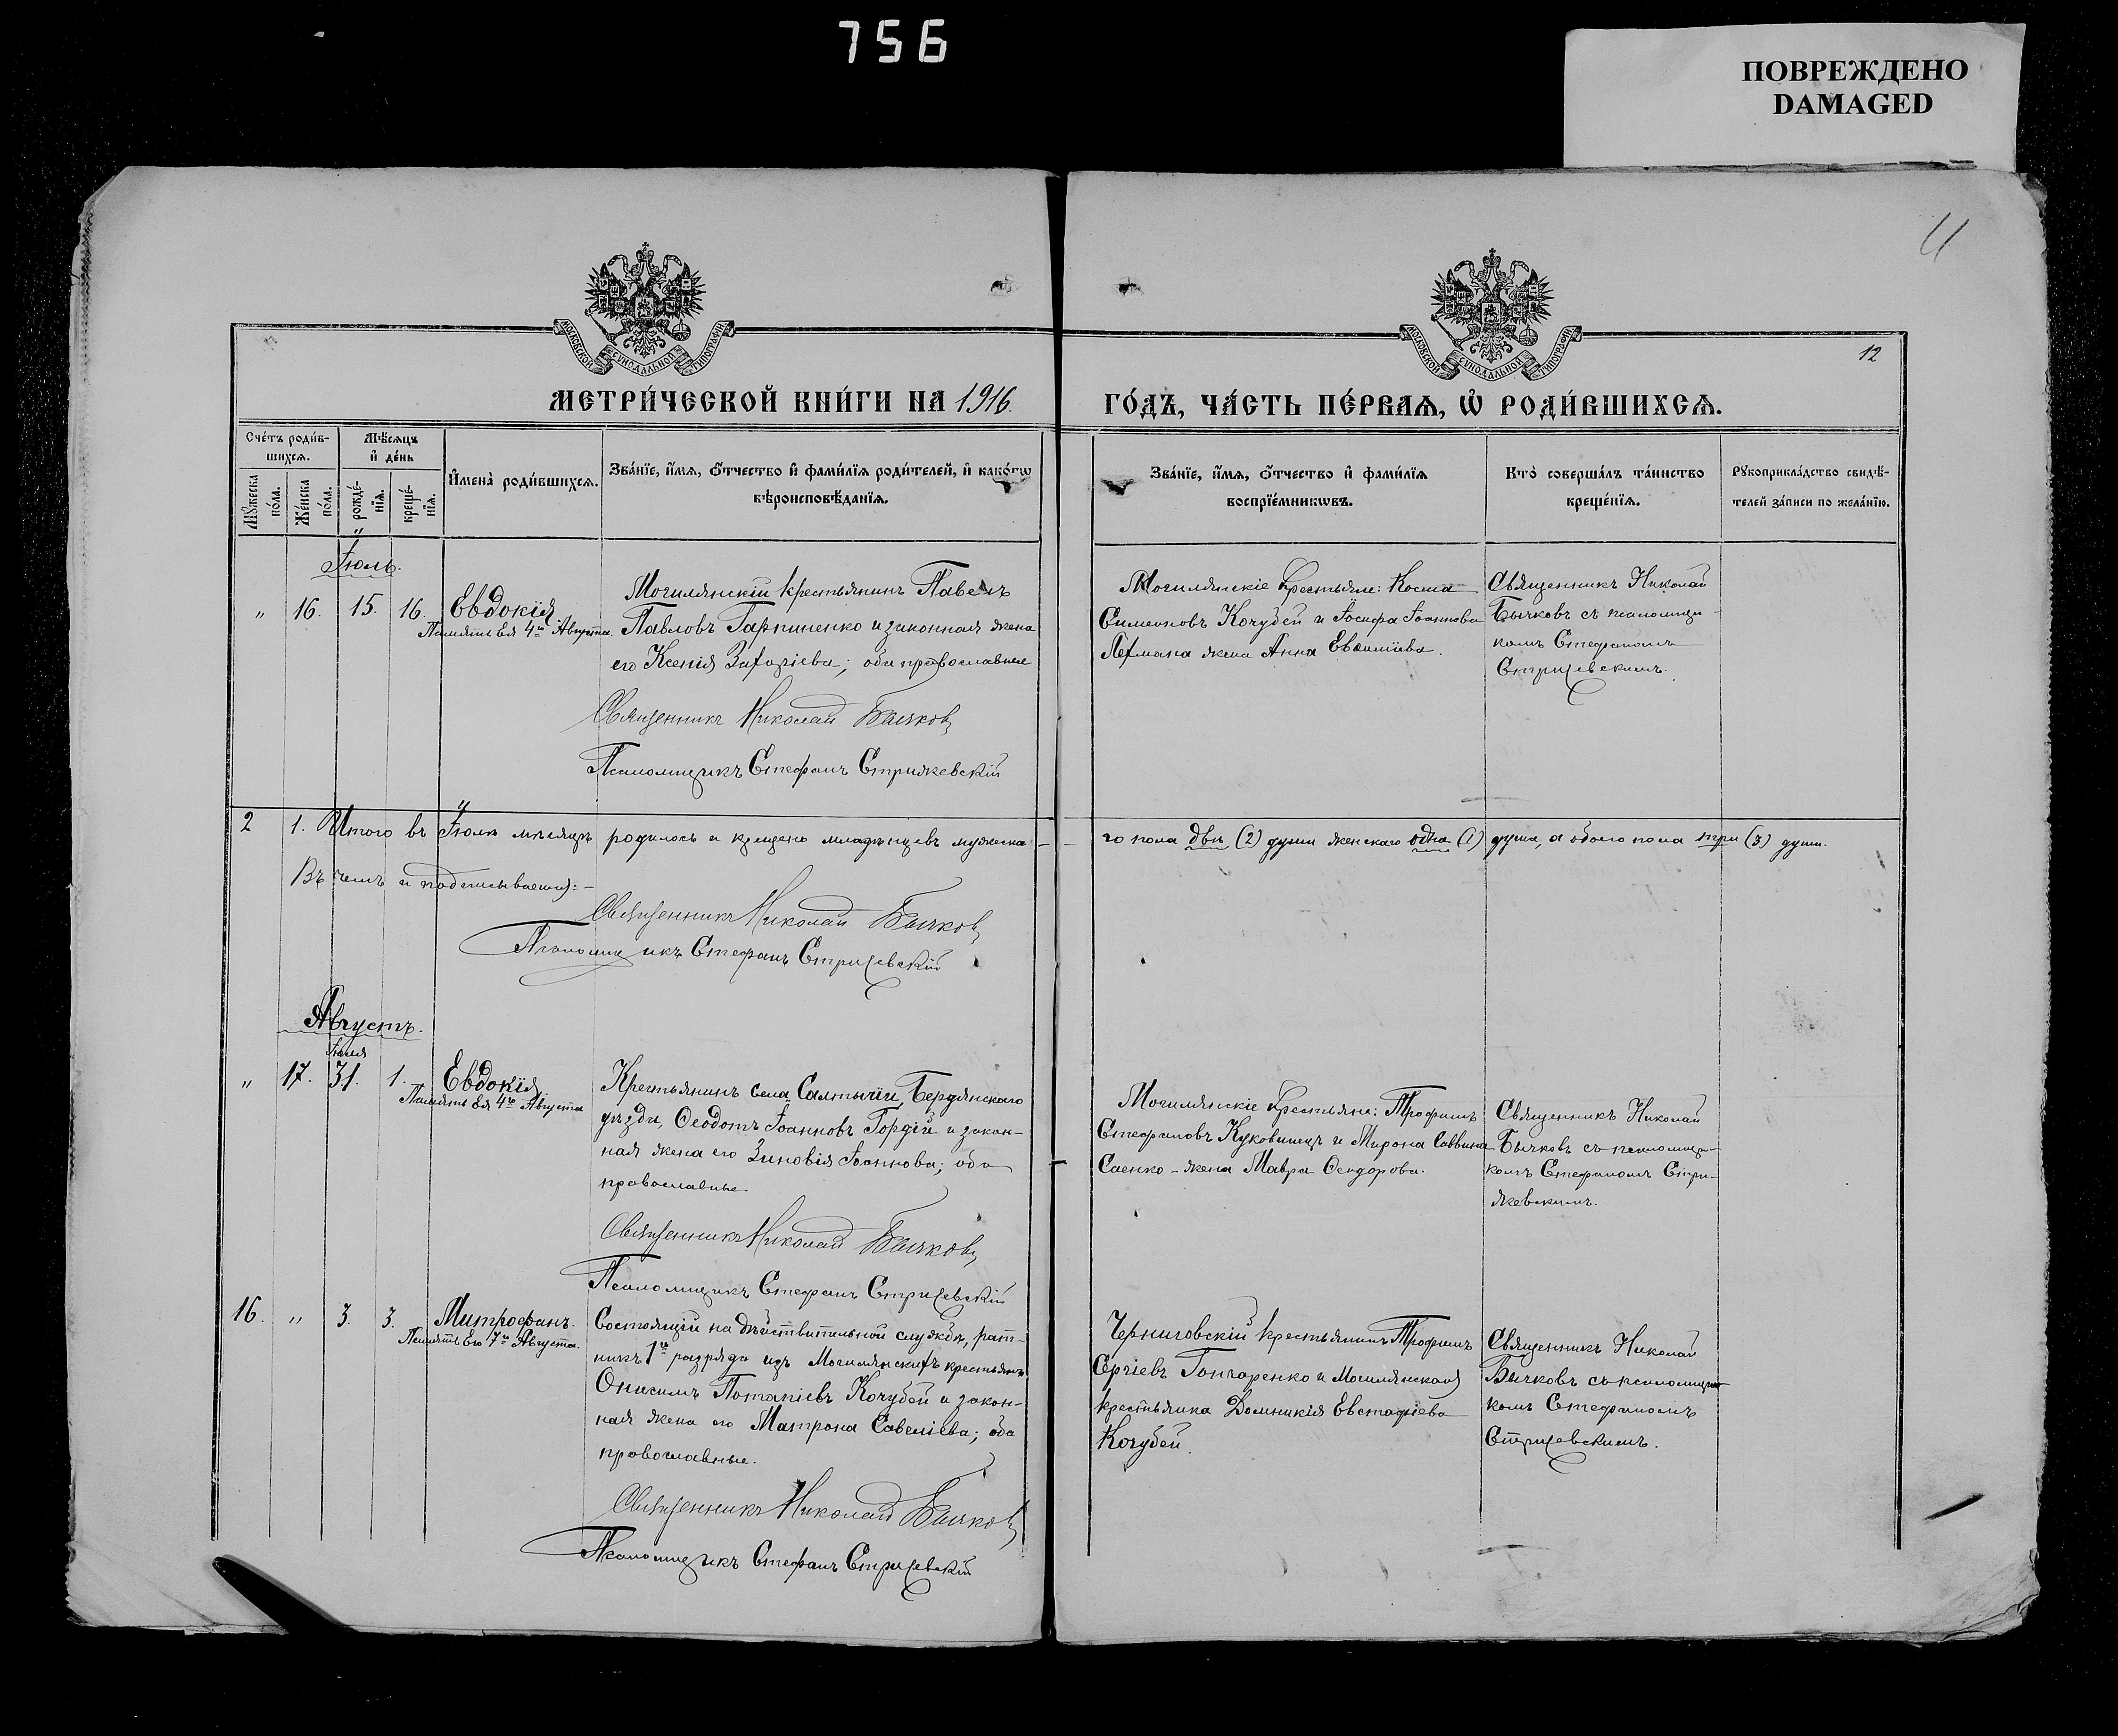 756
ПОВРЕЖДЕНО
DAMAGED
11
12
МОСКОВСКОЙ СѴНОДАЛЬНОЙ ТИПОГРАФІИ
МОСКОВСКОЙ СѴНОДАЛЬНОЙ ТИПОГРАФІИ
МЕТРИ́ЧЕСКОЙ КНИ́ГИ НА 1916.
ГО́ДЪ, ЧА́СТЬ ПЕ́РВАѦ, Ѡ РОДИ́ВШИХСѦ.
Сче́тъ роди́в-
шихсѧ.
Мѣ́сѧцъ
и҆ де́нь
Мꙋ́жеска
по́ла.
Же́нска
по́ла.
рожде́-
нїѧ.
креще́-
нїѧ.
И҆мена̀ роди́вшихсѧ.
Зва́нїе, и҆́мѧ, ѻ҆́тчество и҆ фами́лїѧ роди́телей, и҆ како́гѡ
вѣроисповѣ́данїѧ.
Зва́нїе, и҆́мѧ, ѻ҆́тчество и҆ фами́лїѧ
воспрїе́мникѡвъ.
Кто̀ соверша́лъ та́инство
креще́нїѧ.
Рꙋкоприкла́дство свидѣ́-
телей за́писи по жела́нїю.
Іюль.
" 16. 15. 16. Евдокія
Память Ея 4го Августа.
Могилянскій крестьянинъ Павелъ
Павловъ Гарпиненко и законная жена
его Ксенія Захаріева; оба православные
Священникъ Николай Бычковъ
Псаломщикъ Стефанъ Стрижевскій
Могилянскіе крестьяне: Косма
Симеоновъ Кочубей и Іосифа Іоаннова
Лехмана жена Анна Евѳиміева.
Священникъ Николай
Бычковъ съ псаломщи-
комъ Стефаномъ
Стрижевскимъ.
2 1. Итого въ Іюлѣ мѣсяцѣ родилось и крещено младенцевъ мужеска-
го пола двѣ (2) души женскаго одна (1) душа, а обоего пола три (3) души.
Въ чемъ и подписываемся:-
Священникъ Николай Бычковъ
Псаломщикъ Стефанъ Стрижевскій
Августъ.
Іюля
" 17. 31. 1. Евдокія
Память Ея 4го Августа
Крестьянинъ села Салтычіи, Бердянскаго
уѣзда, Ѳеодотъ Іоанновъ Гордій и закон-
ная жена его Зиновія Іоаннова; оба
православные.
Священникъ Николай Бычковъ
Псаломщикъ Стефанъ Стрижевскій
Могилянскіе крестьяне: Трофимъ
Стефановъ Куковинецъ и Мирона Саввина
Саенко - жена Мавра Ѳеодорова.
Священникъ Николай
Бычковъ съ псаломщи-
комъ Стефаномъ Стри-
жевскимъ.
16. " 3. 3. Митрофанъ.
Память Его 7го Августа.
Состоящій на дѣйствительной службѣ, рат-
никъ 1го разряда изъ Могилянскихъ крестьянъ
Онисимъ Потапіевъ Кочубей и закон-
ная жена его Матрона Савеліева; оба
православные.
Священникъ Николай Бычковъ
Псаломщикъ Стефанъ Стрижевскій
Черниговскій крестьянинъ Трофимъ
Сергіевъ Гончаренко и Могилянская
крестьянка Домникія Евстафіева
Кочубей.
Священникъ Николай
Бычковъ съ псаломщи-
комъ Стефаномъ
Стрижевскимъ.